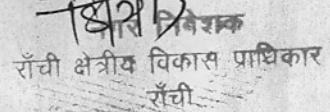 निवेशक
राँची क्षेत्रीय विकास प्राधिकार
राँची